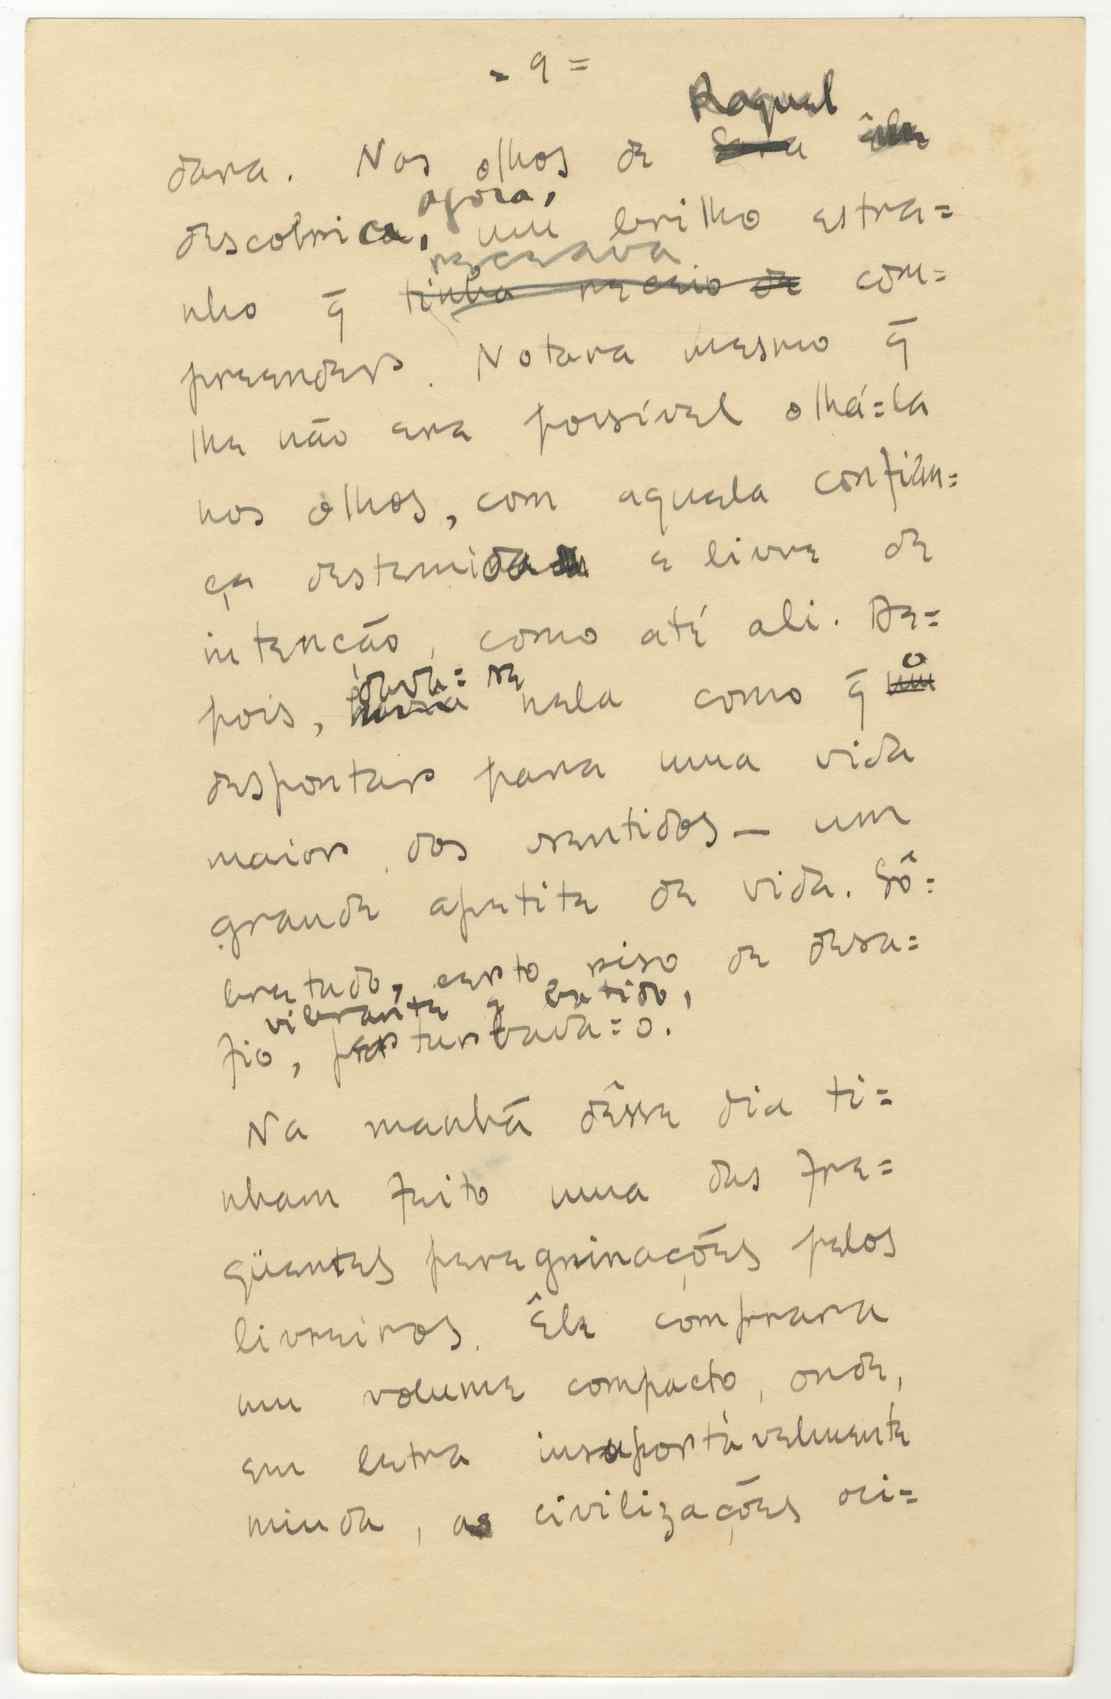 = 9 =
Raquel
dara. Nos olhos de Sara êle
agora,
descobria, um brilho estra=
receava
nho q̄ tinha receio de com=
preender. Notara mesmo q̄
lhe não era possível olhá=la
nos olhos, com aquela confian=
ça destemida e livre de
intenção, como até ali. De=
dava=se o
pois, havia nela como q̄ um
despontar para uma vida
maior dos sentidos — um
grande apetite de vida. Sô=
bretudo, certo riso de desa=
vibrante e batido,
fio, perturbava=o.
Na manhã dêsse dia ti=
nham feito uma das fre=
qüentes peregrinações pelos
livreiros. Êle comprara
um volume compacto, onde,
em letra insuportàvelmente
miuda, as civilizações ori=